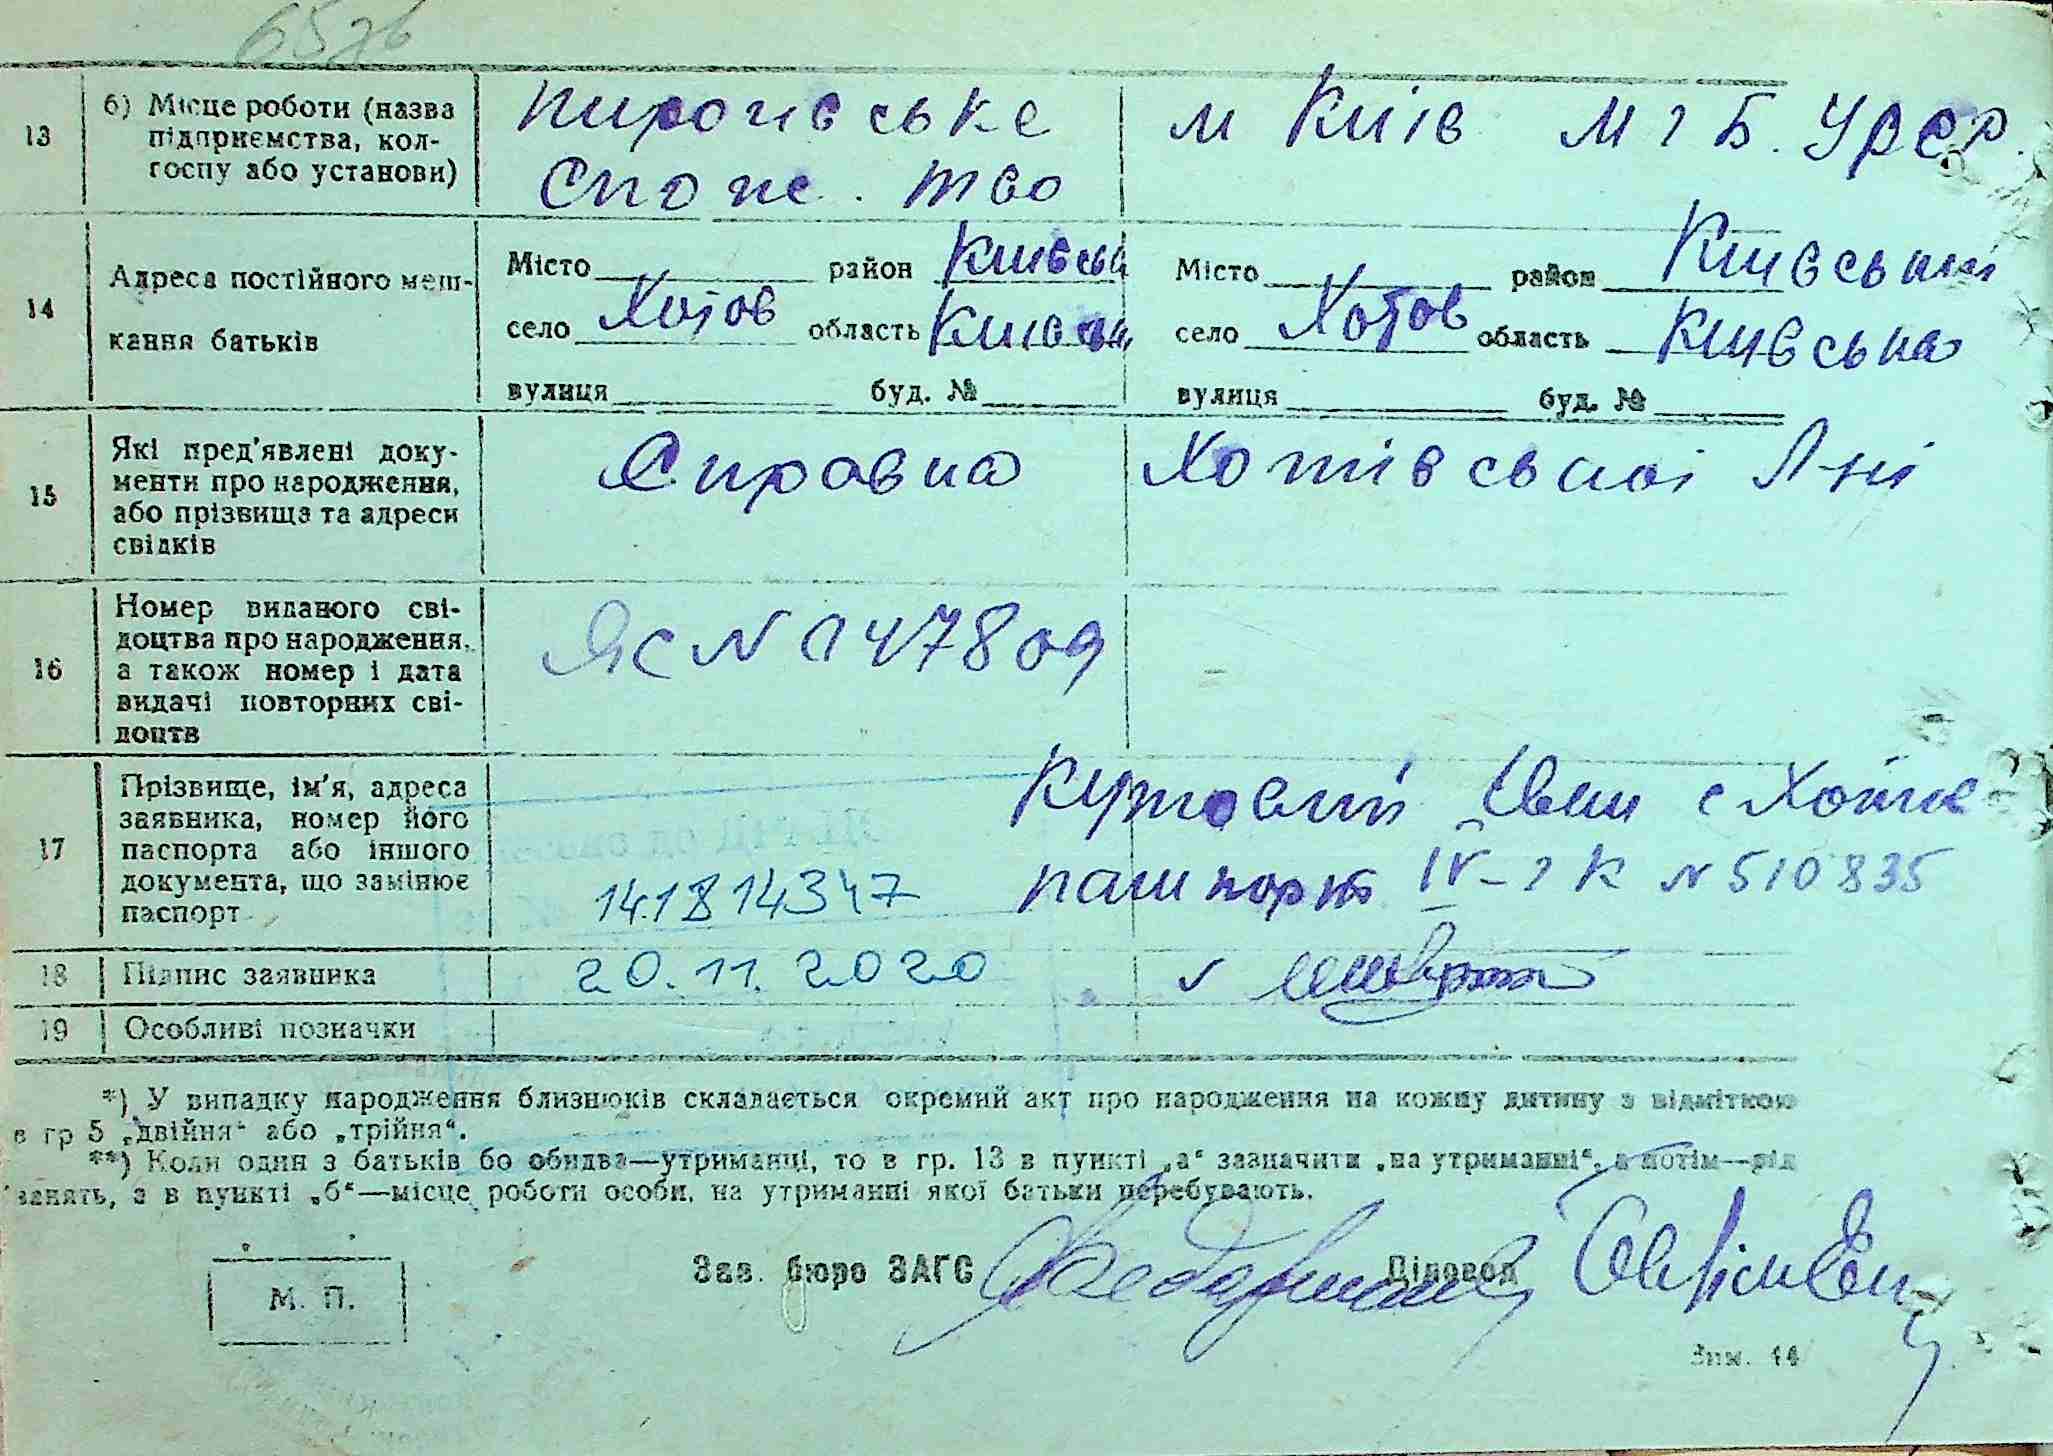 6576
13 б) Місце роботи (назва підприємства, колгоспу або установи)
Пирогівське м Київ МГБ. УРСР.
Спож. тво
14 Адреса постійного мешкання батьків
Місто район Київськ Місто район Київський
село Хотов область Київськ село Хотов область Київська
вулиця буд. № вулиця буд. №
15 Які пред'явлені документи про народження, або прізвища та адреси свідків
Справка Хотівської
16 Номер виданого свідоцтва про народження, а також номер і дата видачі повторних свідоцтв
ЯС N 047809
17 Прізвище, ім'я, адреса заявника, номер його паспорта або іншого документа, що замінює паспорт
Кутовий с Хотів
14.1814347 пашпорт IV-ГК N 510835
18 Підпис заявника
20.11.2020
19 Особливі позначки
*) У випадку народження близнюків складається окремий акт про народження на кожну дитину з відміткою
в гр 5 „двійня“ або „трійня“.
**) Коли один з батьків бо обидва—утриманці, то в гр. 13 в пункті „а“ зазначити „на утриманні“, а потім—рід
занять, а в пункті „б“—місце роботи особи, на утриманні якої батьки перебувають.
Зав. бюро ЗАГС Діловод
М. П.
Зам. 44